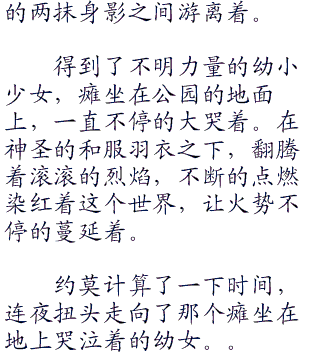 的两抹身影之间游离着。
得到了不明力量的幼小
少女，瘫坐在公园的地面
上，一直不停的大哭着。在
神圣的和服羽衣之下，翻腾
着滚滚的烈焰，不断的点燃
染红着这个世界，让火势不
停的蔓延着。
约莫计算了一下时间，
连夜扭头走向了那个瘫坐在
地上哭泣着的幼女。。